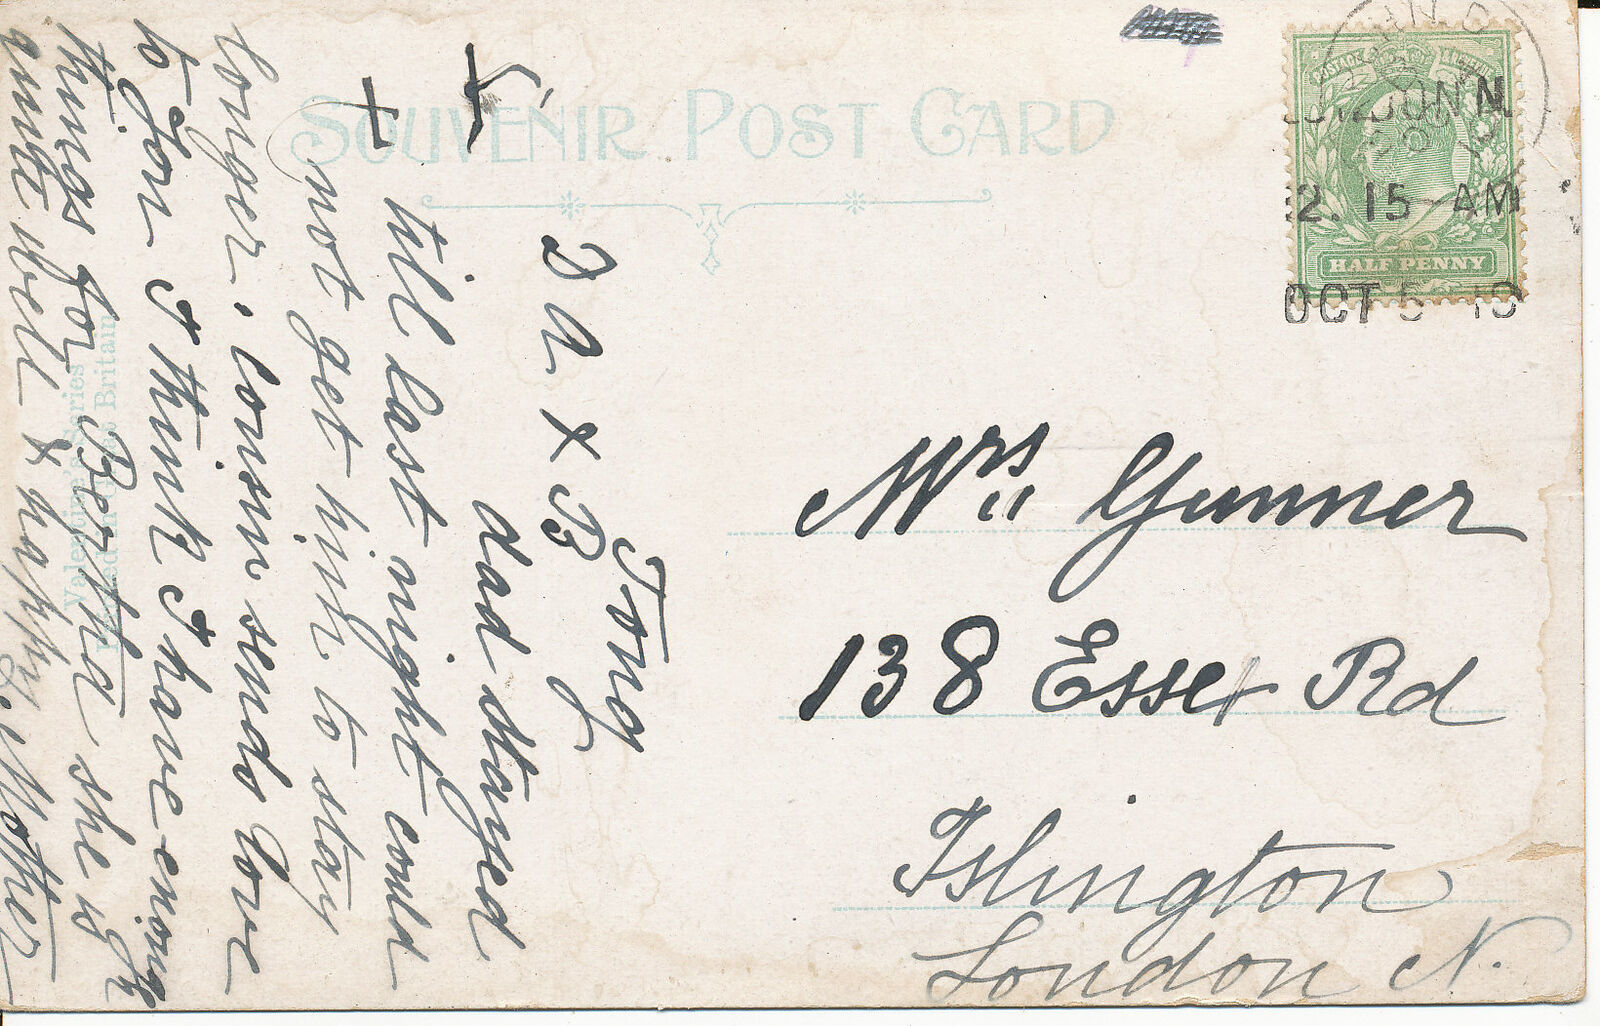 SOUVENIR POST CARD
LONDON N.
12.15 AM
OCT 5 10
HALF PENNY
Mrs Gunner
138 Essex Rd
Islington
London N.
D a x B
dad stayed
till last night could
not get him to stay
longer. Connie sends love
to you I think I have enough
things for Bertha she is
quite well & happy. Mother
Valentine's Series
Printed in Great Britain